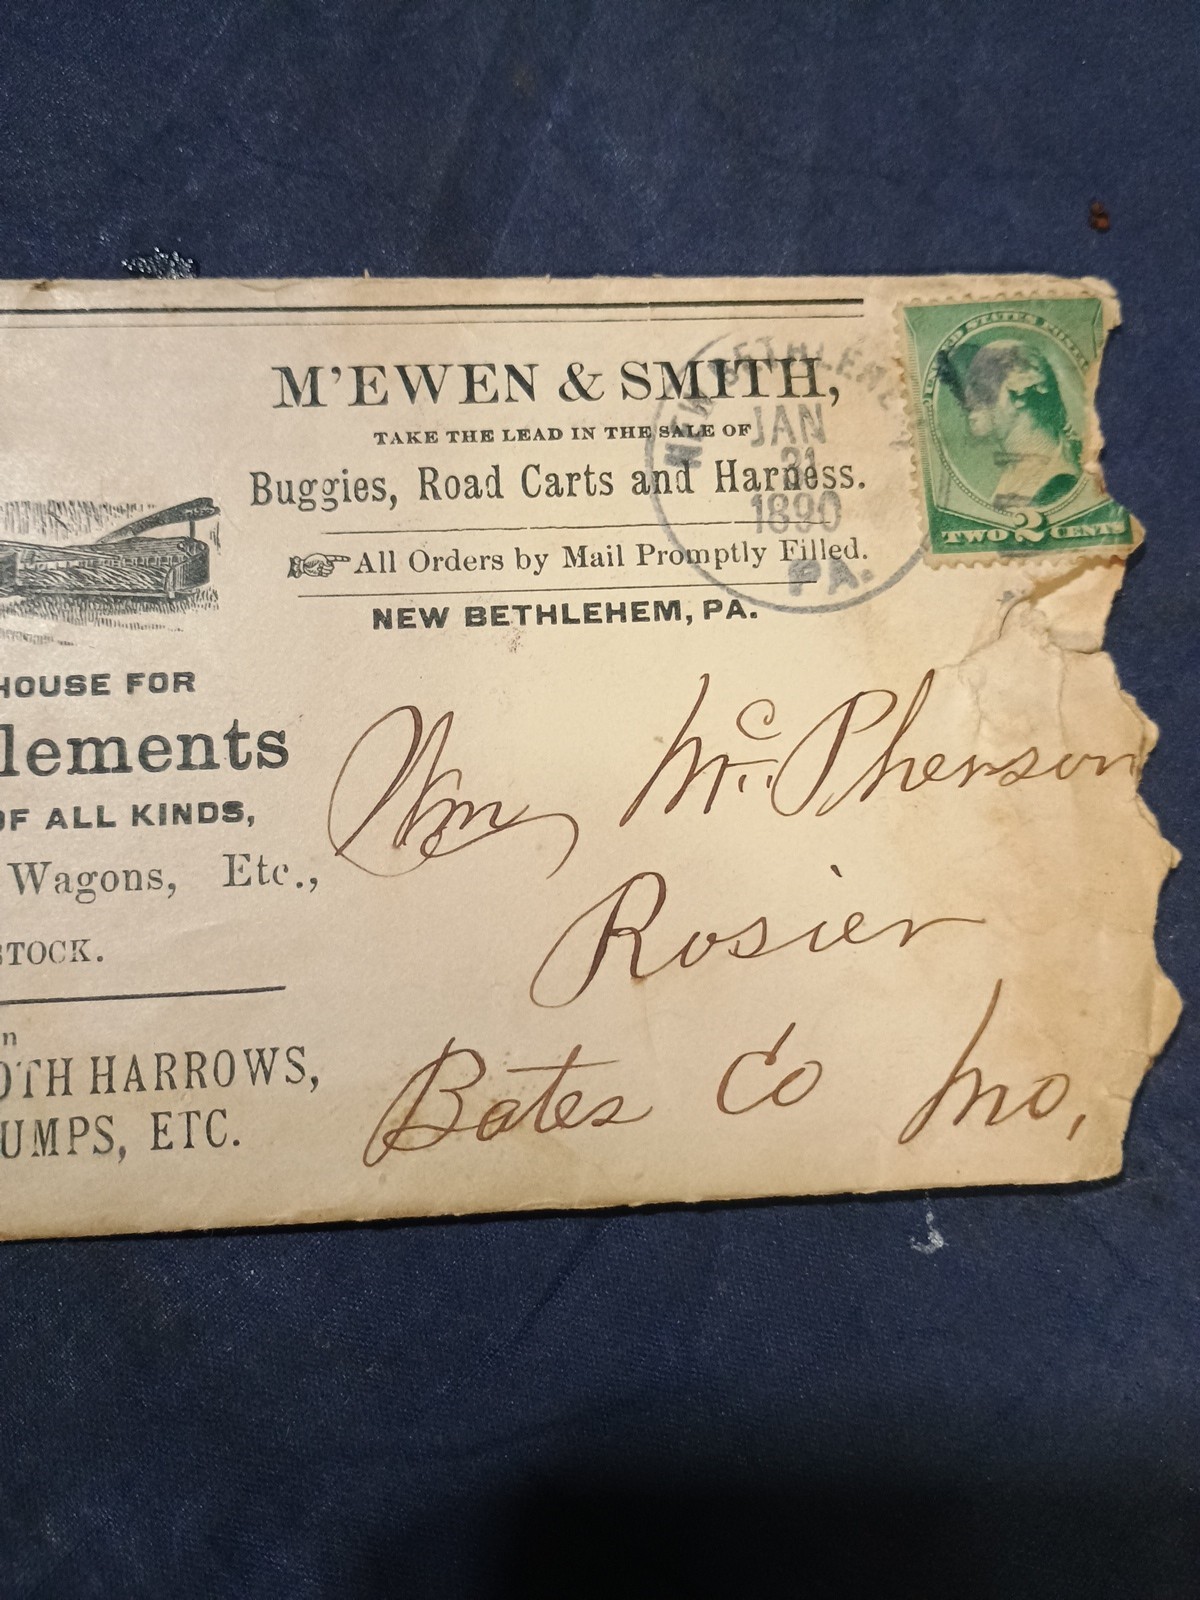 M'EWEN & SMITH,
TAKE THE LEAD IN THE SALE OF
Buggies, Road Carts and Harness.
All Orders by Mail Promptly Filled.
NEW BETHLEHEM, PA.
NEW BETHLEHEM
JAN
31
1890
PA.
UNITED STATES POSTAGE
TWO 2 CENTS
HOUSE FOR
lements
OF ALL KINDS,
Wagons, Etc.,
STOCK.
n
OTH HARROWS,
UMPS, ETC.
Wm McPherson
Rosier
Bates Co Mo,